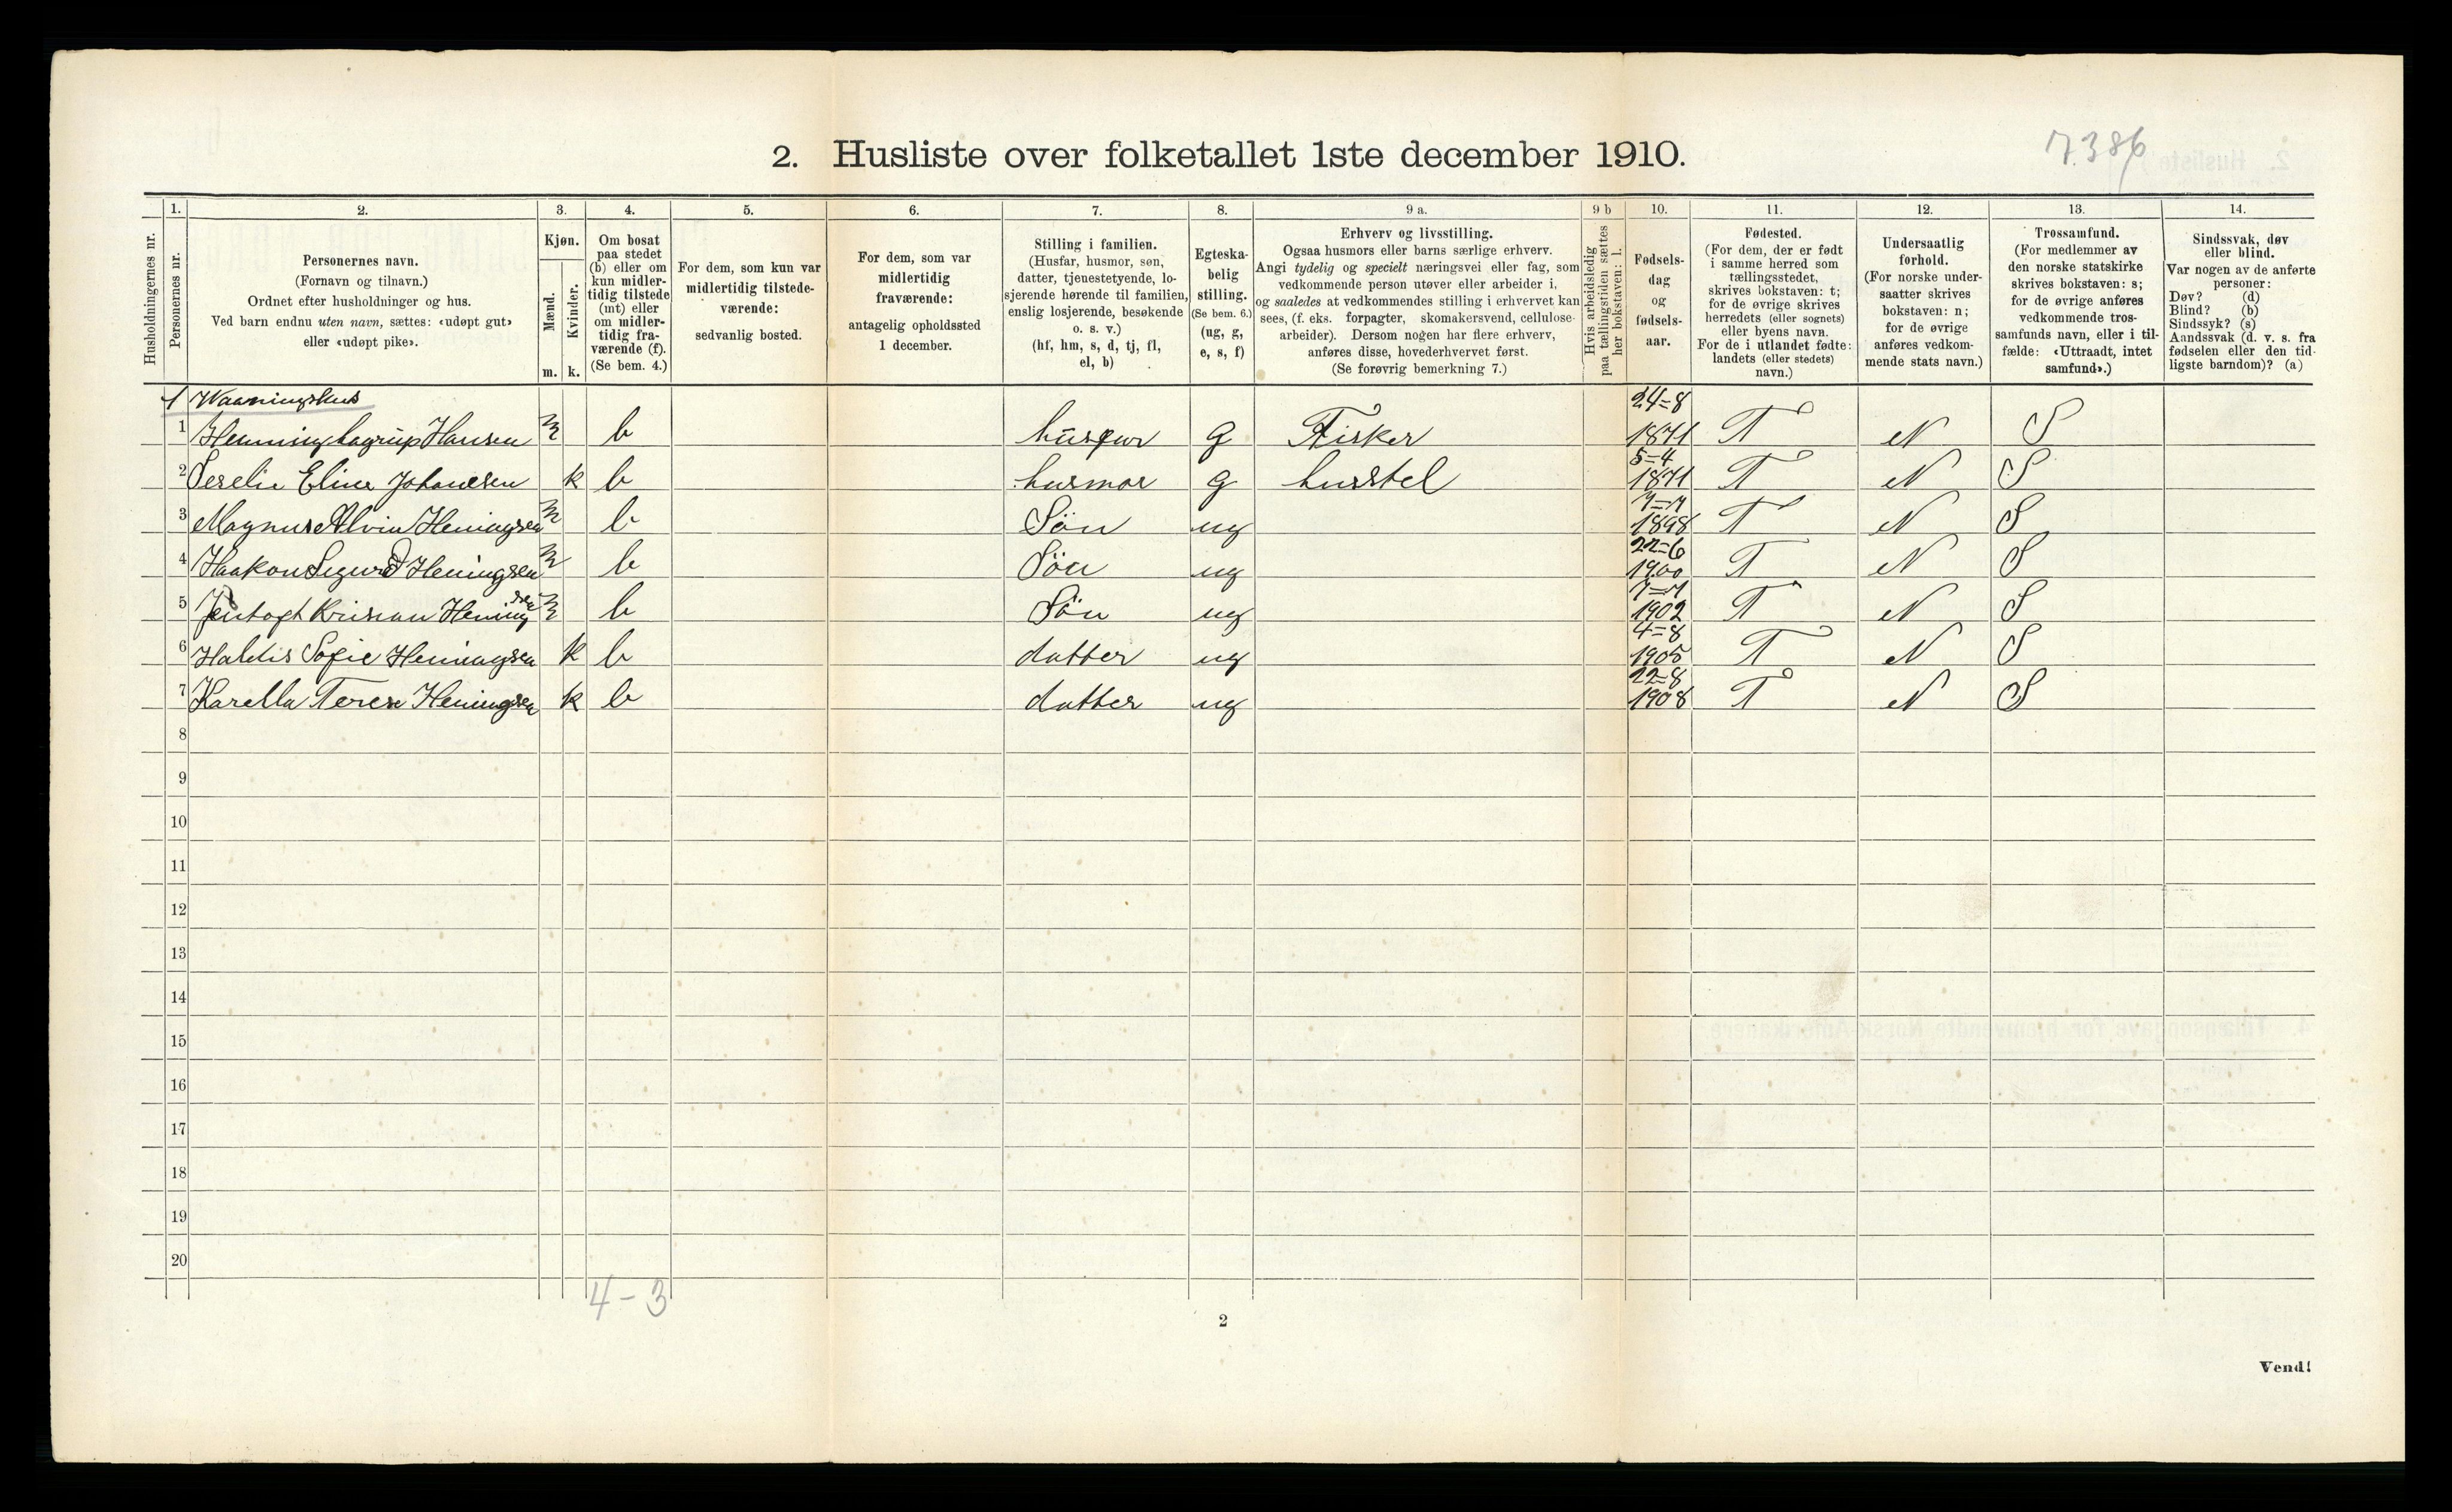 2. Husliste over folketallet 1ste december 1910.
7.386
Husholdningernes nr.
1.
Personernes nr.
2.
Personernes navn.
(Fornavn og tilnavn.)
Ordnet efter husholdninger og hus.
Ved barn endnu uten navn, sættes: «udøpt gut»
eller «udøpt pike».
3.
Kjøn.
Mænd.
Kvinder.
m. k.
4.
Om bosat
paa stedet
(b) eller om
kun midler-
tidig tilstede
(mt) eller
om midler-
tidig fra-
værende (f).
(Se bem. 4.)
5.
For dem, som kun var
midlertidig tilstede-
værende:
sedvanlig bosted.
6.
For dem, som var
midlertidig
fraværende:
antagelig opholdssted
1 december.
7.
Stilling i familien.
(Husfar, husmor, søn,
datter, tjenestetyende, lo-
sjerende hørende til familien,
enslig losjerende, besøkende
o. s. v.)
(hf, hm, s, d, tj, fl,
el, b)
8.
Egteska-
belig
stilling.
(Se bem. 6.)
(ug, g,
e, s, f)
9 a.
Erhverv og livsstilling.
Ogsaa husmors eller barns særlige erhverv.
Angi tydelig og specielt næringsvei eller fag, som
vedkommende person utøver eller arbeider i,
og saaledes at vedkommendes stilling i erhvervet kan
sees, (f. eks. forpagter, skomakersvend, cellulose-
arbeider). Dersom nogen har flere erhverv,
anføres disse, hovederhvervet først.
(Se forøvrig bemerkning 7.)
9 b
Hvis arbeidsledig
paa tællingstiden sættes
her bokstaven: l.
10.
Fødsels-
dag
og
fødsels-
aar.
11.
Fødested.
(For dem, der er født
i samme herred som
tællingsstedet,
skrives bokstaven: t;
for de øvrige skrives
herredets (eller sognets)
eller byens navn.
For de i utlandet fødte:
landets (eller stedets)
navn.)
12.
Undersaatlig
forhold.
(For norske under-
saatter skrives
bokstaven: n;
for de øvrige
anføres vedkom-
mende stats navn.)
13.
Trossamfund.
(For medlemmer av
den norske statskirke
skrives bokstaven: s;
for de øvrige anføres
vedkommende tros-
samfunds navn, eller i til-
fælde: «Uttraadt, intet
samfund».)
14.
Sindssvak, døv
eller blind.
Var nogen av de anførte
personer:
Døv? (d)
Blind? (b)
Sindssyk? (s)
Aandssvak (d. v. s. fra
fødselen eller den tid-
ligste barndom)? (a)
1 Waaningshus
1 Henning Hansen m b husfar g Fisker 24=8 1871 T N S
2 Eline Johansen k b husmor g husstel 5=4 1871 T N S
3 Magnus Alvin Heningsen m b Sön ug 7=7 1898 T N S
4 Haakon Sigurd Heningsen m b Sön ug 22=6 1900 T N S
5 Jentoft Krisian Heningsen m b Sön ug 7=7 1902 T N S
6 Haldis Sofie Heningsen k b datter ug 4=8 1905 T N S
7 Karella Terese Heningsen k b datter ug 22=8 1908 T N S
8
9
10
11
12
13
14
15
16
17
18
19
20
4-3
2
Vend!